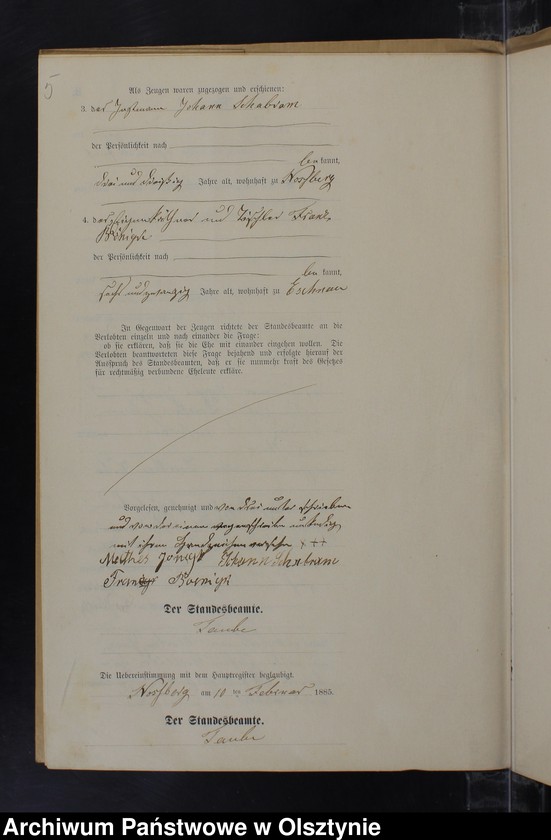 5
Als Zeugen waren zugezogen und erschienen:
3. der Instmann Johann Schabram
der Persönlichkeit nach
be kannt,
drei und dreißig Jahre alt, wohnhaft zu Nossberg
4. der und Tischler Franz
der Persönlichkeit nach
be kannt,
sechs und zwanzig Jahre alt, wohnhaft zu Eschenau
In Gegenwart der Zeugen richtete der Standesbeamte an die
Verlobten einzeln und nach einander die Frage:
ob sie erklären, daß sie die Ehe mit einander eingehen wollen. Die
Verlobten beantworteten diese Frage bejahend und erfolgte hierauf der
Ausspruch des Standesbeamten, daß er sie nunmehr kraft des Gesetzes
für rechtmäßig verbundene Eheleute erkläre.
Vorgelesen, genehmigt und von drei unterschrieben
und von der einen
mit ihrem Handzeichen versehen +++
Johann Schabram
Der Standesbeamte.
Taube
Die Uebereinstimmung mit dem Hauptregister beglaubigt.
Nossberg am 10 ten Februar 1885.
Der Standesbeamte.
Taube
Archiwum Państwowe w Olsztynie